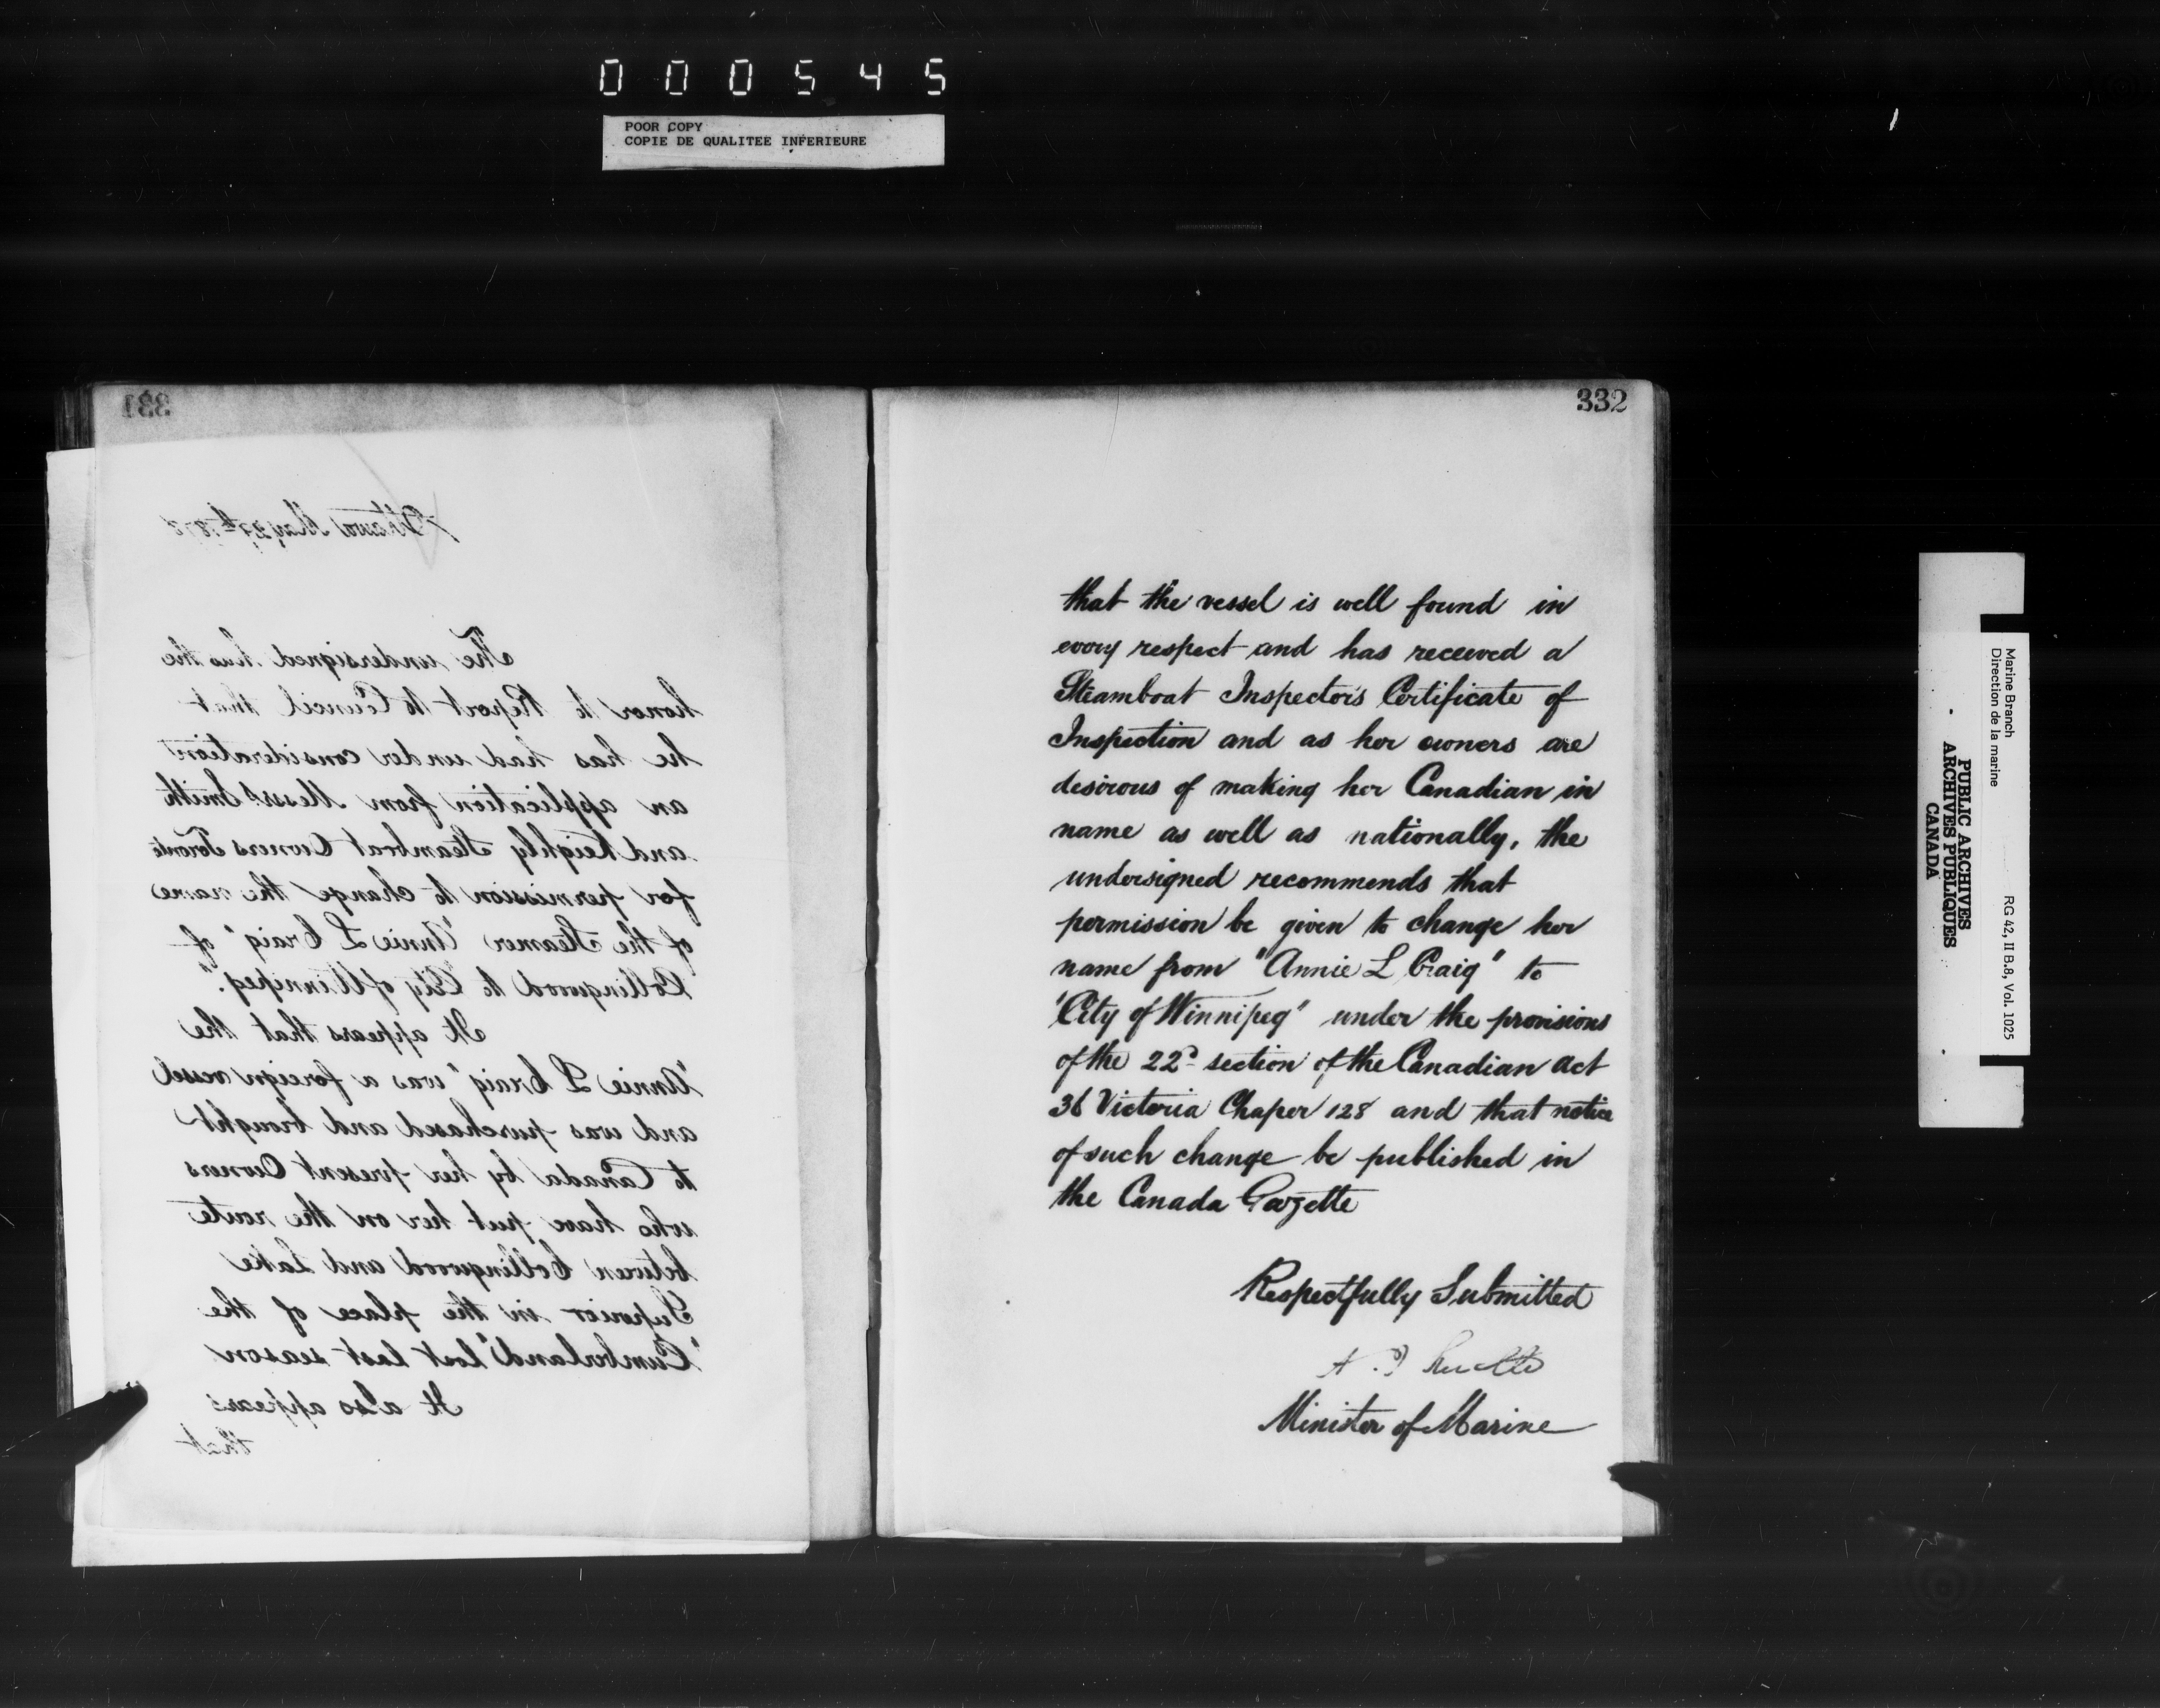 000545
POOR COPY
COPIE DE QUALITEE INFERIEURE
331
Ottawa May 27th 1878
The undersigned has the
honor to Report to Council that
he has had under consideration
an application from Messrs Smith
and Keighly Steamboat Owners Toronto
for permission to change the name
of the Steamer "Annie L Craig" of
Collingwood to "City of Winnipeg".
It appears that the
"Annie L Craig" was a foreign vessel
and was purchased and brought
to Canada by her present Owners
who have put her on the route
between Collingwood and Lake
Superior in the place of the
"Cumberland" lost last season
It also appears
that
332
that the vessel is well found in
every respect and has received a
Steamboat Inspector's Certificate of
Inspection and as her owners are
desirous of making her Canadian in
name as well as nationally, the
undersigned recommends that
permission be given to change her
name from "Annie L Craig" to
"City of Winnipeg" under the provisions
of the 22d section of the Canadian Act
36 Victoria Chaper 128 and that notice
of such change be published in
the Canada Gazette
Respectfully Submitted
Minister of Marine
Marine Branch
Direction de la marine
RG 42, II B.8, Vol. 1025
PUBLIC ARCHIVES
ARCHIVES PUBLIQUES
CANADA